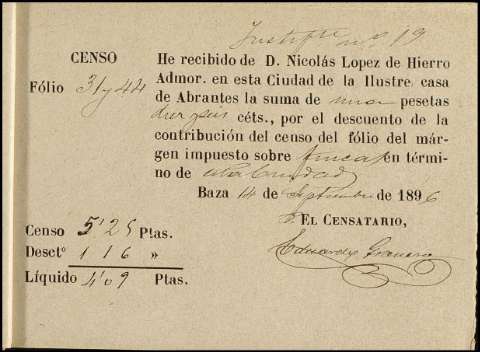 Justifte nº 19
CENSO
Fólio 31 y 44
He recibido de D. Nicolás Lopez de Hierro
Admor. en esta Ciudad de la Ilustre casa
de Abrantes la suma de una pesetas
diez seis céts., por el descuento de la
contribución del censo del fólio del már-
gen impuesto sobre fincas en térmi-
no de esta Ciudad
Baza 14 de Septiembre de 1896
EL CENSATARIO,
Eduardo Granero
Censo 5'25 Ptas.
Desctº 1 16 »
Líquido 4'09 Ptas.